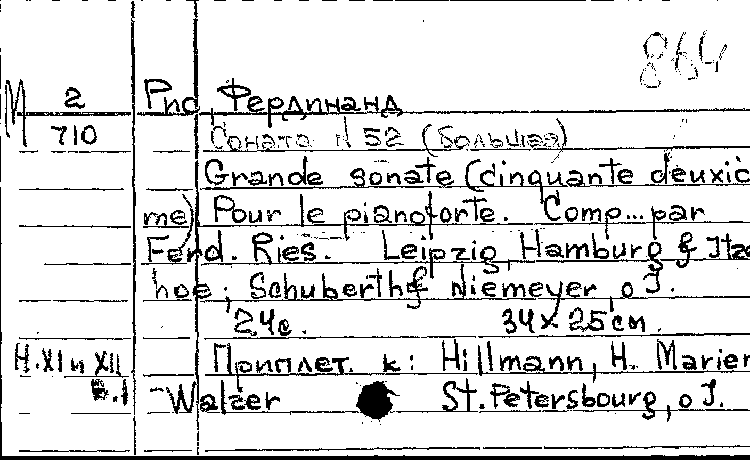 864
М 2 Рис, Фердинанд
710 Соната N 52 (Большая)
Grande sonate (cinquante deuxiè
me) Pour le pianoforte. Comp...par
Ferd. Ries. Leipzig, Hamburg & Itze
hoe; Schuberth & Niemeyer, o J.
24с. 34х25см.
Н.XI и XII Приплет. к: Hillmann, H. Marien
Б.1 -Walzer St. Petersbourg, o J.